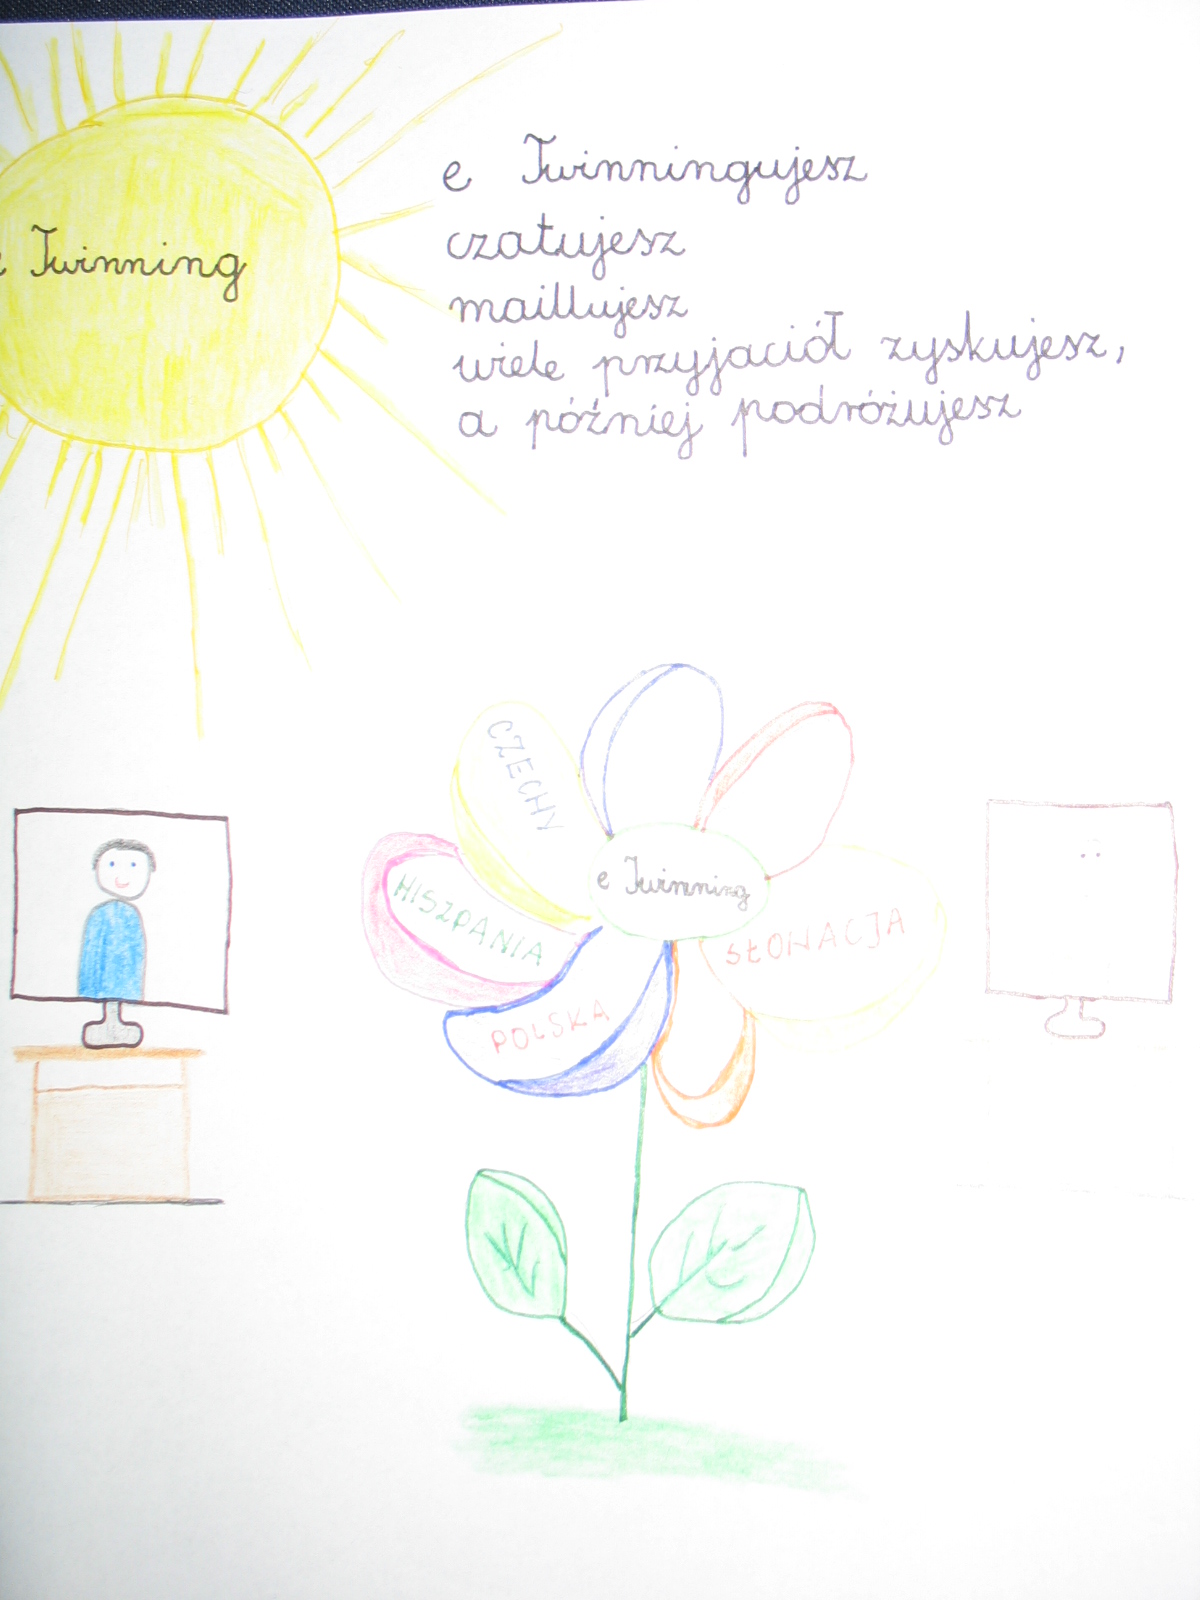 e Twinningujesz
czatujesz
maillujesz
wiele przyjaciół zyskujesz,
a później podróżujesz
e Twinning
CZECHY
HISZPANIA
e Twinning
SŁOWACJA
POLSKA